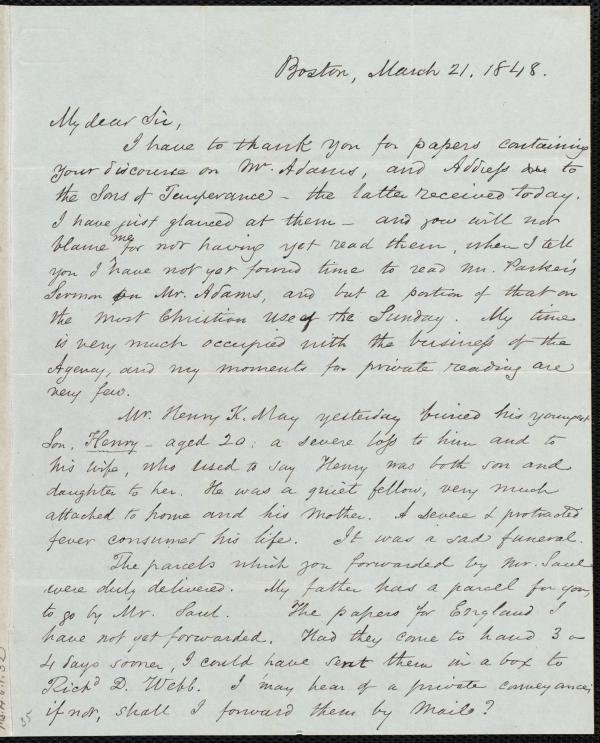 Boston, March 21. 1848.
My dear Sir,
I have to thank you for papers containing
your discourse on Mr. Adams, and Address to
the Sons of Temperance - the latter received today.
I have just glanced at them - and you will not
blame me for not having yet read them, when I tell
you I have not yet found time to read Mr. Parker's
Sermon on Mr. Adams, and but a portion of that on
the most Christian use of the Sunday. My time
is very much occupied with the business of the
Agency, and my moments for private reading are
very few.
Mr. Henry K. May yesterday buried his youngest
Son, Henry - aged 20: a severe loss to him and to
his wife, who used to say Henry was both son and
daughter to her. He was a quiet fellow, very much
attached to home and his mother. A severe & protracted
fever consumed his life. It was a sad funeral.
The parcels which you forwarded by Mr. Saul
were duly delivered. My father has a parcel for you,
to go by Mr. Saul. The papers for England I
have not yet forwarded. Had they come to hand 3 or
4 days sooner, I could have sent them in a box to
Richd D. Webb. I may hear of a private conveyance;
if not, shall I forward them by Mail?
35